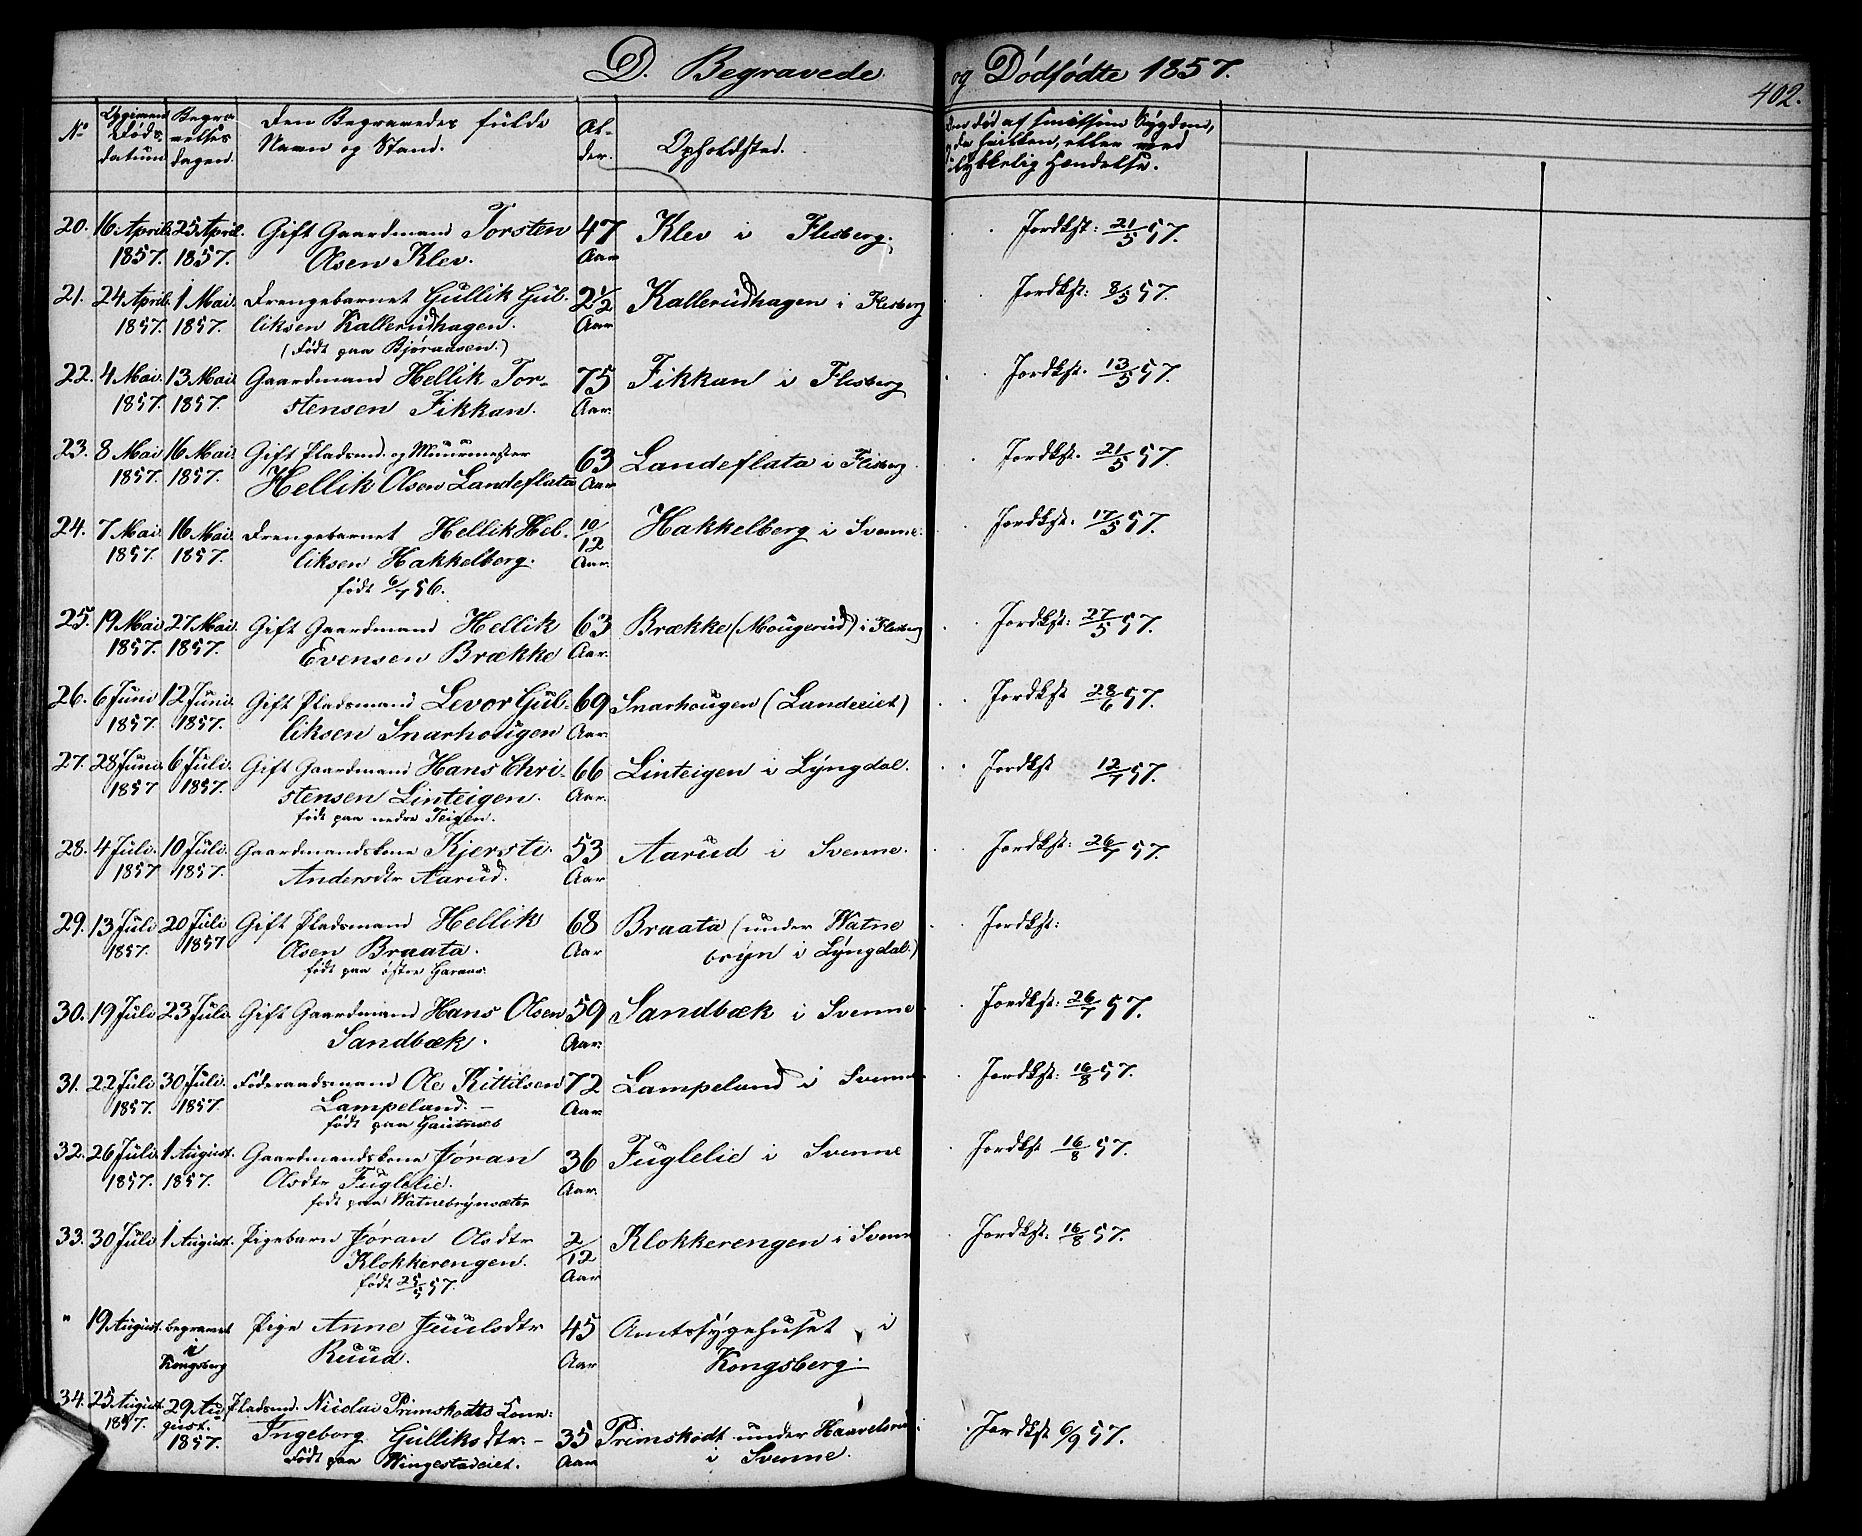 D. Begravede og Dødfødte 1857.
402.
No
Opgiven Døds-datum
Begravelses dagen.
Den Begravedes fulde Navn og Stand.
Alder.
Opholdsted.
Om død af smitsom Sygdom,
eller ved
ulykkelig Hændelse.
20. 16 April 25 April. Gift Gaardmand Torsten 47 Klev i Flesberg. Jordkst: 21/5 57.
1857. 1857. Olsen Klev. Aar
21. 24 April. 1 Mai. Drengebarnet Gullik Gul- 2 1/2 Kallerudhagen i Flesberg Jordkst: 8/5 57.
1857. 1857. liksen Kallerudhagen. Aar
(Født paa Bjøraasen.)
22. 4 Mai. 13 Mai. Gaardmand Hellik Tor- 75 Fikkan i Flesberg Jordkst. 13/5 57.
1857. 1857. stensen Fikkan. Aar.
23. 8 Mai 16 Mai. Gift Pladsmd. og Muurmester 63 Landeflata i Flesberg. Jordkst. 21/5 57.
1857. 1857. Hellik Olsen Landeflata Aar
24. 7 Mai. 16 Mai. Drengebarnet Hellik Hel- 10/12 Hakkelberg i Svenne. Jordkst. 17/5 57.
1857. 1857. liksen Hakkelberg. Aar.
født 6/7 56.
25. 19 Mai. 27 Mai. Gift Gaardmand Hellik 63 Brække (Mougerud) i Flesberg Jordkst: 27/5 57.
1857. 1857. Evensen Brække Aar.
26. 6 Juni 12 Juni. Gift Pladsmand Levor Gul- 69 Snarhougen (Landeeiet) Jordkst 28/6 57.
1857. 1857. liksen Snarhougen Aar.
27. 28 Juni. 6 Juli. Gift Gaardmand Hans Chri- 66 Linteigen i Lyngdal. Jordkst 12/7 57.
1857 1857. stensen Linteigen. Aar.
født paa nedre Teigen.
28. 4 Juli. 10 Juli. Gaardmandskone Kjersti 53 Aarud i Svenne. Jordkst: 26/7 57.
1857 1857. Andersdtr Aarud. Aar
29. 13 Juli 20 Juli Gift Pladsmand Hellik 68 Braata (under Watne Jordkst:
1857. 1857 Olsen Braata. Aar bryn i Lyngdal.)
født paa østre Garaas.
30. 19 Juli 23 Juli. Gift Gaardmand Hans Olsen 59 Sandbæk i Svenne Jordkst: 26/7 57.
Sandbæk. Aar.
31. 22 Juli 30 Juli. Føderaadsmand Ole Kittilsen 72 Lampeland i Svenne Jordkst: 16/8 57.
1857. 1857. Lampeland. – Aar
født paa Gautnæs
32. 26 Juli. 1 August. Gaardmandskone Jøran 36 Fuglelie i Svenne Jordkst 16/8 57.
1857. 1857. Olsdtr Fuglelie. Aar.
født paa Watnebrynsæter
33. 30 Juli 1 August. Pigebarn Jøran Olsdtr 2/12 Klokkerengen i Svenne Jordkst: 16/8 57.
Klokkerengen. Aar
født 25/5 57.
" 19 August. begravet i Kongsberg Pige Anne Juulsdtr 45 Amtssygehuset i
Ruud. Aar Kongsberg.
34. 25 August 29 Au- Pladsmd. Nicolai Primskodts Kone:
1857. gust. Ingeborg Gulliksdtr. – 35 Primskodt under Haavelsrud Jordkst 6/9 57.
1857. Født paa Wingestadeiet. Aar i Svenne.